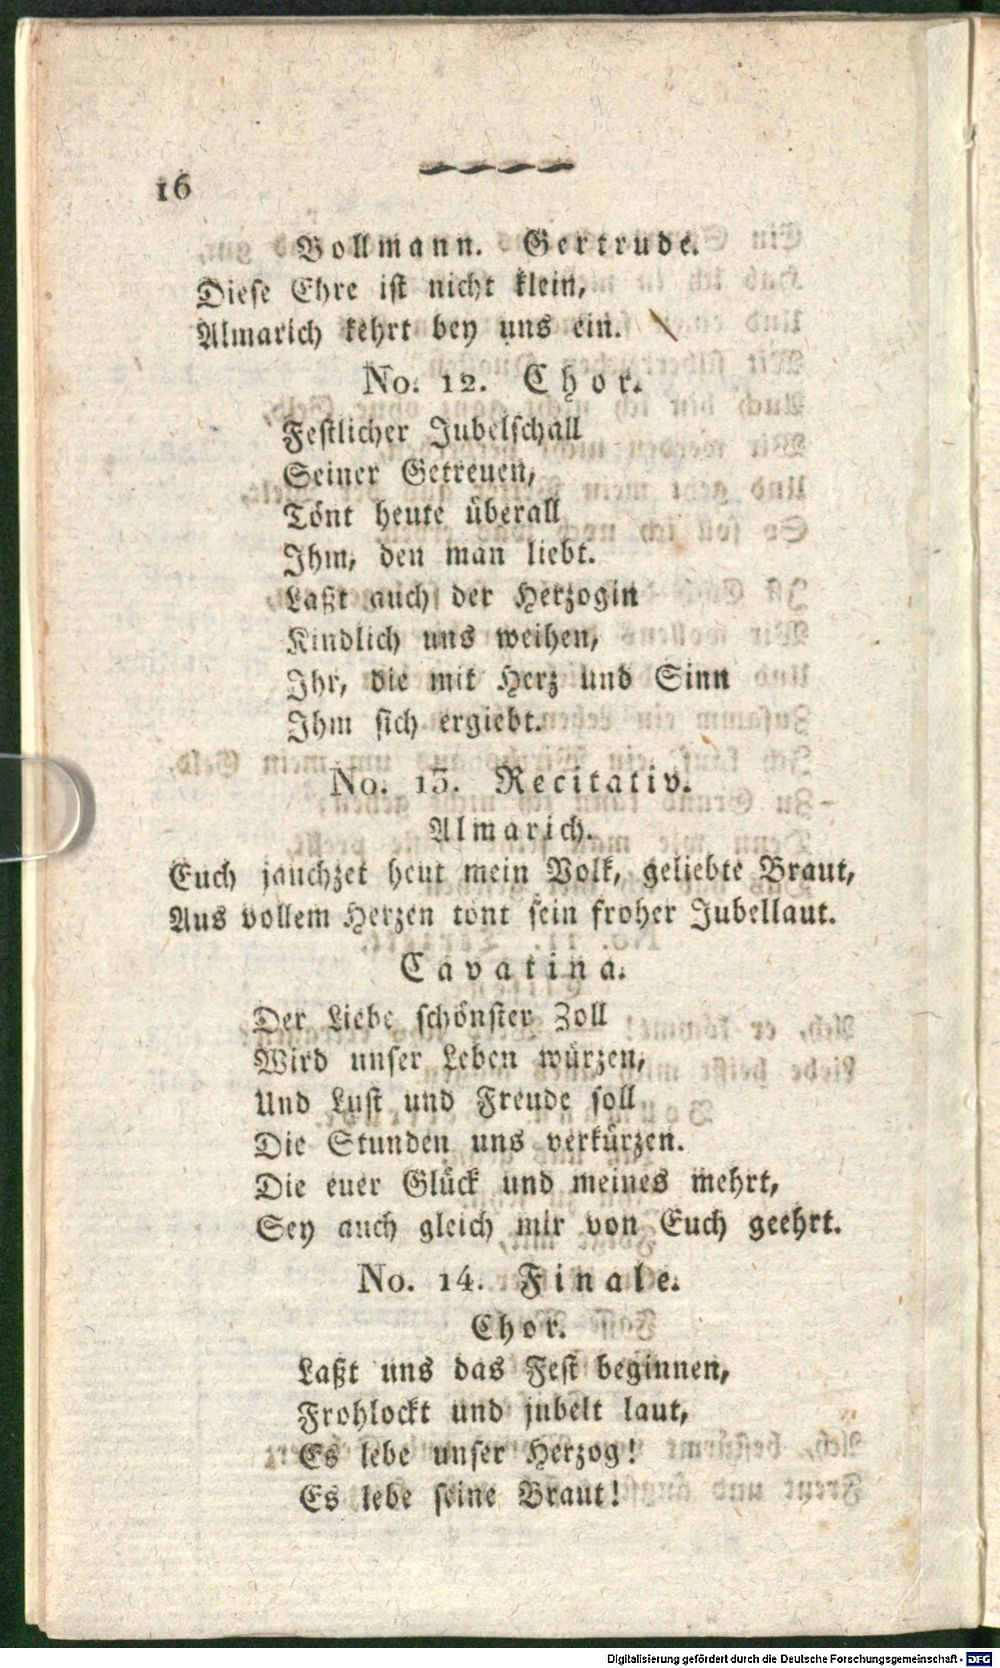 16
Vollmann. Gertrude.
Diese Ehre ist nicht klein,
Almarich kehrt bey uns ein.
No. 12. Chor.
Festlicher Jubelschall
Seiner Getreuen,
Tönt heute überall
Ihm, den man liebt.
Laßt auch der Herzogin
Kindlich uns weihen,
Ihr, die mit Herz und Sinn
Ihm sich ergiebt.
No. 13. Recitativ.
Almarich.
Euch jauchzet heut mein Volk, geliebte Braut,
Aus vollem Herzen tönt sein froher Jubellaut.
Cavatina.
Der Liebe schönster Zoll
Wird unser Leben würzen,
Und Lust und Freude soll
Die Stunden uns verkürzen.
Die euer Glück und meines mehrt,
Sey auch gleich mir von Euch geehrt.
No. 14. Finale.
Chor.
Laßt uns das Fest beginnen,
Frohlockt und jubelt laut,
Es lebe unser Herzog!
Es lebe seine Braut!
Digitalisierung gefördert durch die Deutsche Forschungsgemeinschaft - DFG